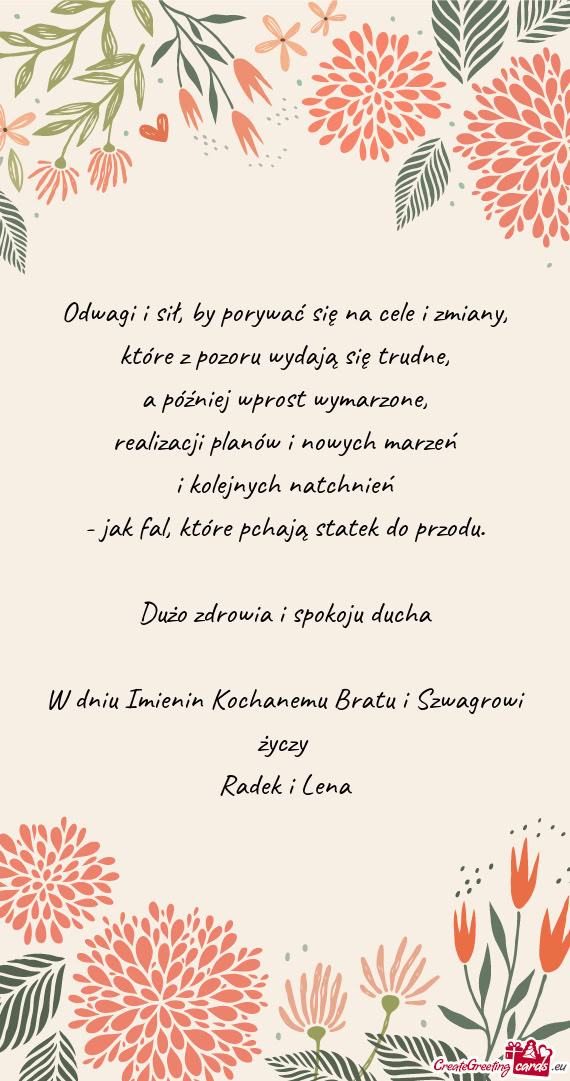 Odwagi i sił, by porywać się na cele i zmiany,
które z pozoru wydają się trudne,
a później wprost wymarzone,
realizacji planów i nowych marzeń
i kolejnych natchnień
- jak fal, które pchają statek do przodu.
Dużo zdrowia i spokoju ducha
W dniu Imienin Kochanemu Bratu i Szwagrowi
życzy
Radek i Lena
CreateGreeting cards .eu